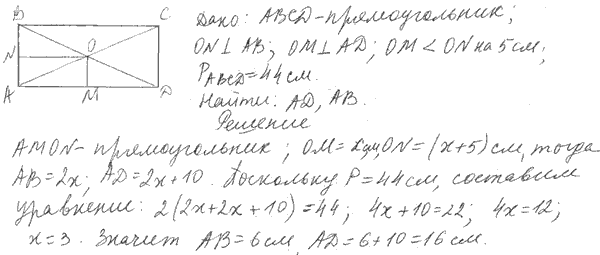 B C Дано: ABCD – прямоугольник;
O ON ⊥ AB; OM ⊥ AD; OM < ON на 5 см;
N P_ABCD = 44 см.
A M D Найти: AD, AB.
Решение
AMON – прямоугольник; OM = x см, ON = (x+5) см, тогда
AB = 2x; AD = 2x + 10. Поскольку P = 44 см, составим
уравнение: 2(2x + 2x + 10) = 44; 4x + 10 = 22; 4x = 12;
x = 3. Значит AB = 6 см, AD = 6 + 10 = 16 см.